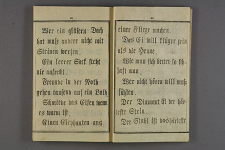 Wer ein gläsern Dach
hat muß andere nicht mit
Steinen werfen.
Ein leerer Sack steht
nie aufrecht.
Freunde in der Noth
gehen tausend auf ein Loth
Schmiede das Eisen wenn
es warm ist.
Einen Elephanten aus
einer Fliege machen.
Das Ei will klüger sein
als die Henne.
Wie man sich bettet so
man.
Wer nicht hören will muß
fühlen.
Der Diamant ist der
Stein.
Der Stahl ist